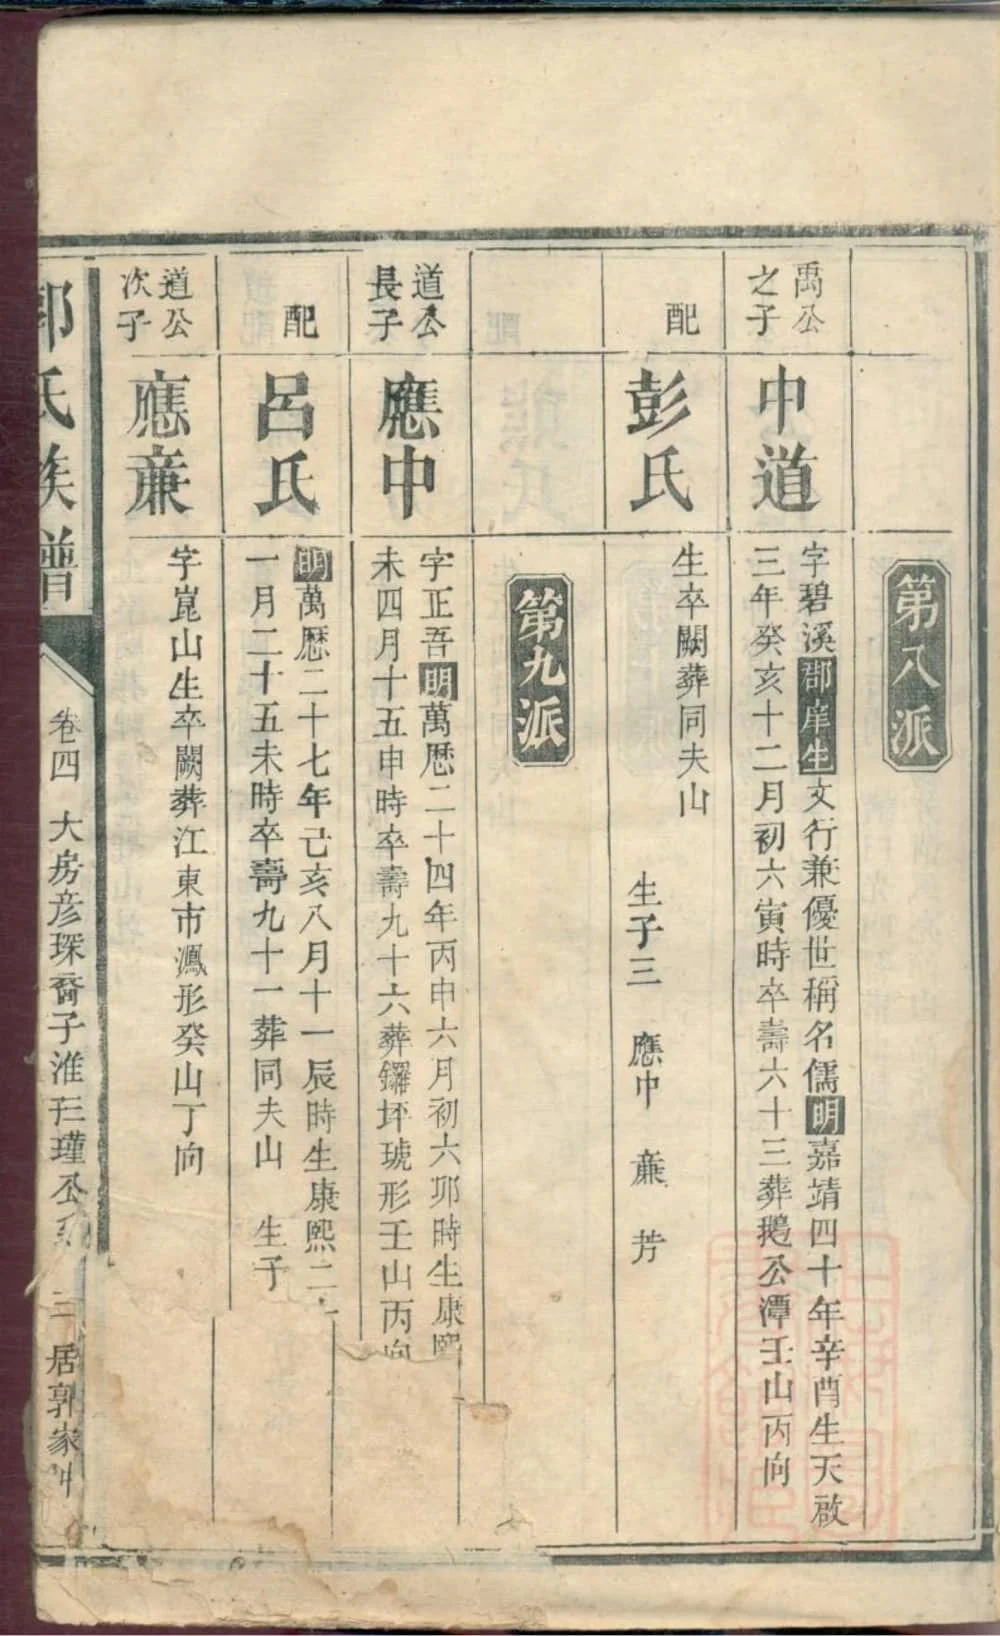 第八派
禹公之子
中道
字碧溪郡庠生文行兼優世稱名儒明嘉靖四十年辛酉生天啟
三年癸亥十二月初六寅時卒壽六十三葬鵝公潭壬山丙向
配
彭氏
生卒闕葬同夫山
生子三 應中 亷 芳
第九派
道公長子
應中
字正吾明萬厯二十四年丙申六月初六卯時生康熙
未四月十五申時卒壽九十六葬鑼坪琥形壬山丙向
配
呂氏
明萬厯二十七年己亥八月十一辰時生康熙二
一月二十五未時卒壽九十一葬同夫山 生子
道公次子
應亷
字崑山生卒闕葬江東市鳯形癸山丁向
郭氏族譜
卷四 大房彦琛裔子淮三瑾公系 居郭家